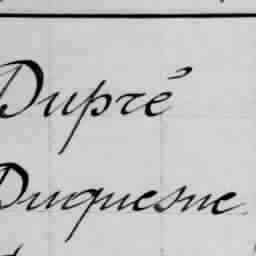 Dupré
Duquesne